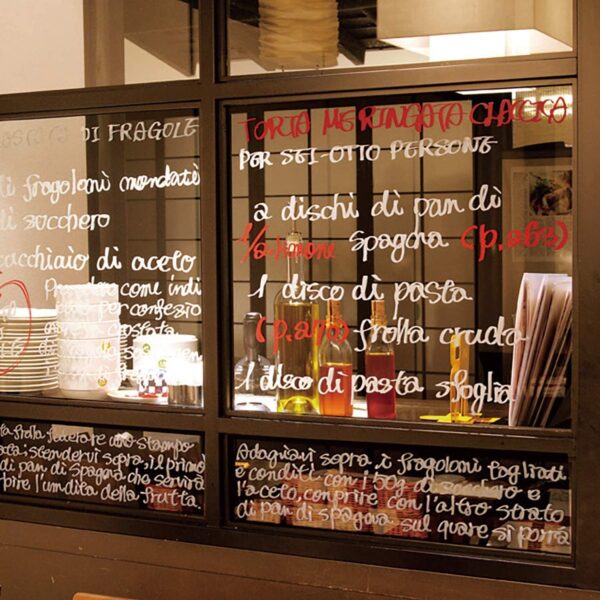 DI FRAGOLE
di fragoloni mondati
di zucchero
cucchiaio di aceto
come indi
per confezio
crostata
TORTA MERINGATA CLACCIA
PER SEI-OTTO PERSONE
2 dischi di pan di
1/2 limone spagna
1 disco di pasta
frolla cruda
1 disco di pasta sfoglia
ta frolla foderare uno stampo
stendervi sopra, il primo
di pan di spagna che servirà
l'umdita della frutta.
Adagiarvi sopra i fragoloni tagliati
e conditi con i 50g di zucchero e
l'aceto, conprire con l'altro strato
di pan di spagna sul quare si porrà